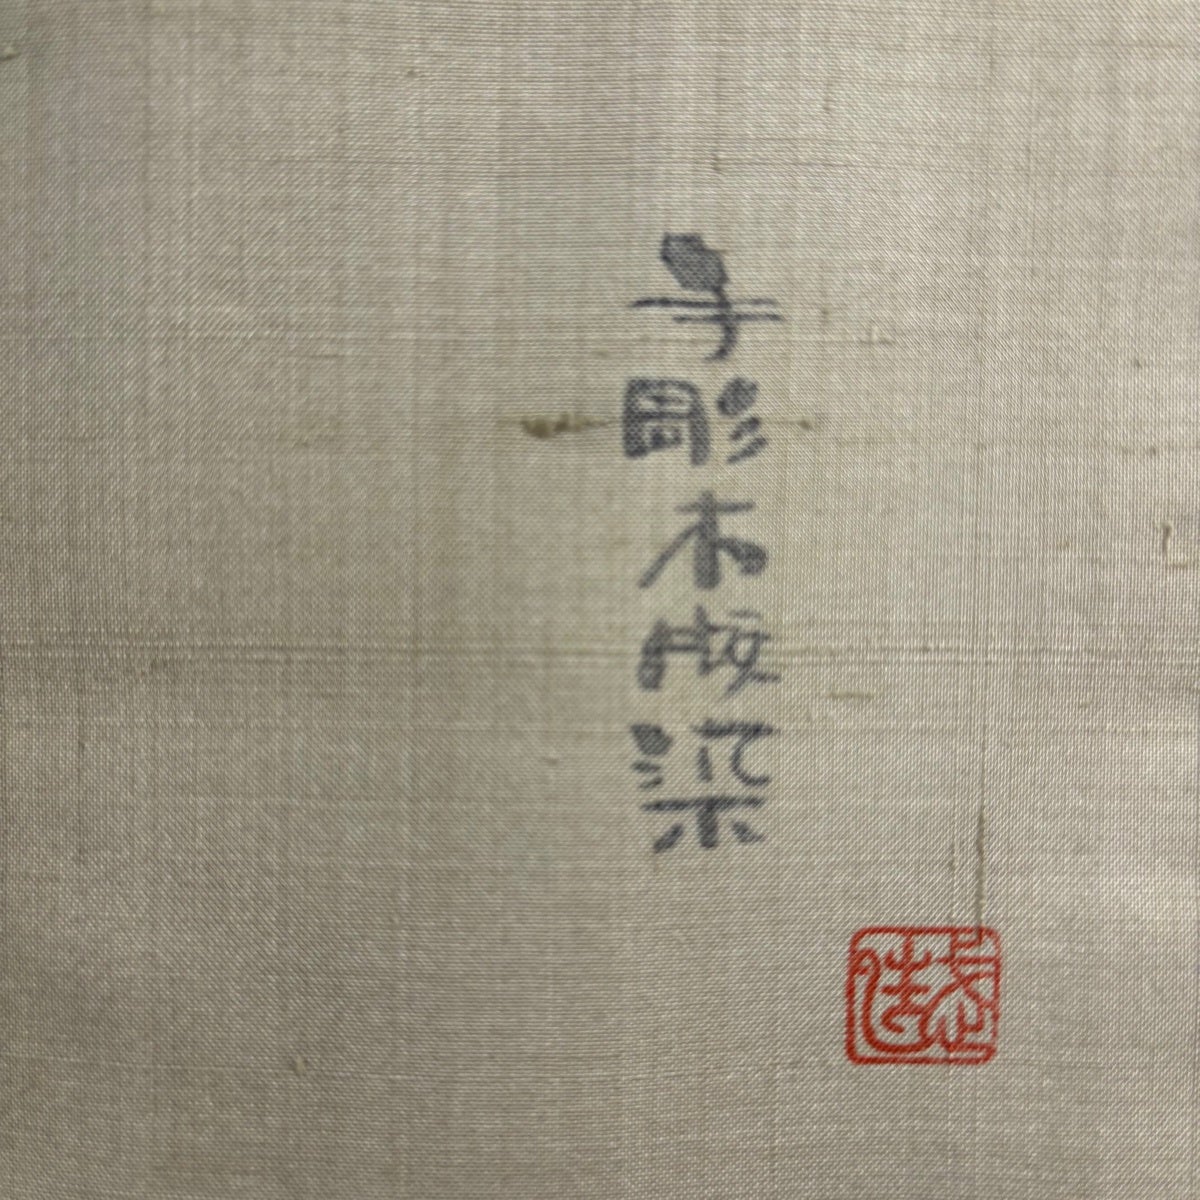 手彫木版染